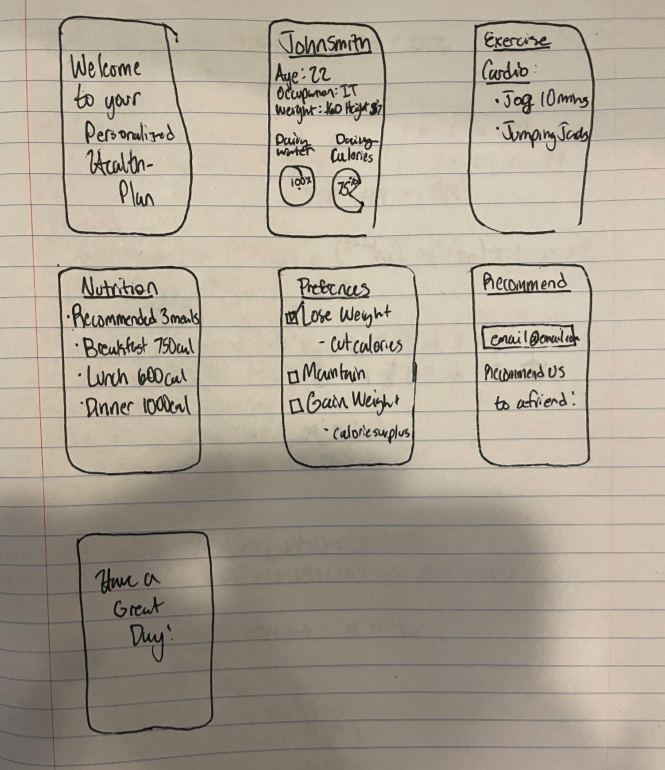 Welcome
to your
Personalized
Health-
Plan
John Smith
Age: 22
Occupation: IT
Weight: 160 Height 5'7
Daily Daily
water Calories
100% 75%
Exercise
Cardio:
· Jog 10 mins
· Jumping Jacks
Nutrition
· Recommended 3 meals
· Breakfast 750 cal
· Lunch 600 cal
· Dinner 1000 cal
Prefences
Lose Weight
- Cut calories
Maintain
Gain Weight
- calorie surplus
Recommend
email@email.com
Recommend Us
to a friend!
Have a
Great
Day!